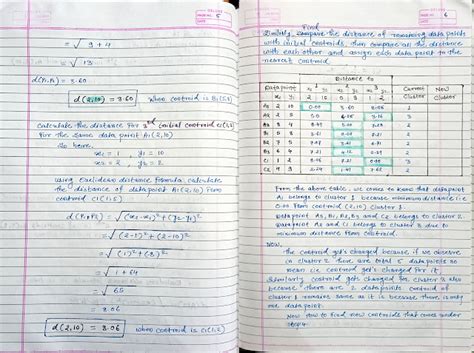 PAGE NO. 5
DATE
= √9+4
= √13
d(P1,P2) = 3.60
d(2,10) = 3.60 when centroid is B1(5,8)
calculate the distance for 3rd initial centroid c1(1,2)
for the same data point A1(2,10)
So here,
x1 = 1 , y1 = 2
x2 = 2 , y2 = 10
using Euclidean distance formula calculate
the distance of datapoint A1(2,10) from
centroid c1(1,2)
d(P1,P2) = √(x2-x1)² + (y2-y1)²
= √(2-1)² + (2-10)²
= √(1)² + (8)²
= √1+64
= √65
= 8.06
d(2,10) = 8.06 when centroid is c1(1,2)
PAGE NO. 6
DATE
Find
Similarly, compare the distance of remaining data points
with initial centroids, then compare all the distance
with each other and assign each data point to the
nearest centroid
Distance to
Data point Current New
2 10 5 8 1 2 Cluster Cluster
A1 2 10 0.00 3.60 8.06 1
A2 2 5 5.0 3.16 3
A3 8 4 2
B1 5 8 2
B2 7 5 2
B3 6 4 2
C1 1 2 0.00 3
C2 4 9 2
From the above table, we comes to know that datapoint
A1 belongs to cluster 1 because minimum distance i.e
0.00 from centroid (2,10) cluster 1
Datapoint A3, B1, B2, B3 and C2 belongs to cluster 2
Datapoint A2 and C1 belongs to cluster 3 due to
minimum distance from centroid.
NOW,
The centroid get's changed because if we observe
in cluster 2 there are total 5 datapoints so
mean i.e centroid get's changed for it.
Similarly centroid gets changed for cluster 3 also
because there are 2 datapoints centroid of
cluster 1 remains same as it is because there is only
one datapoint.
Now How to find new centroids that comes under
step 4